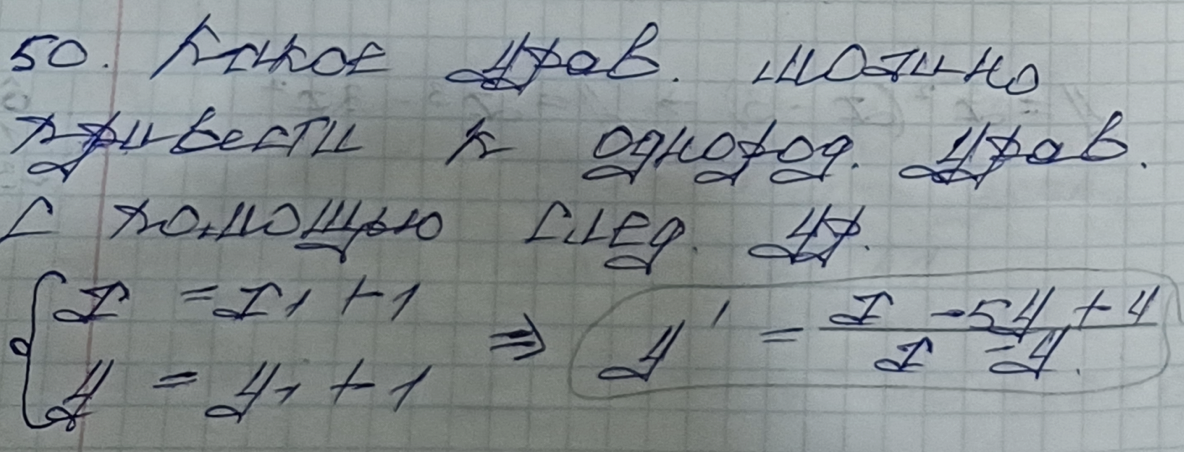 50. Какое урав. можно
привести к однород. урав.
с помощью след. ур.
{ x = x₁ + 1
y = y₁ + 1 ⇒ y' = (x - 5y + 4) / (x - y)